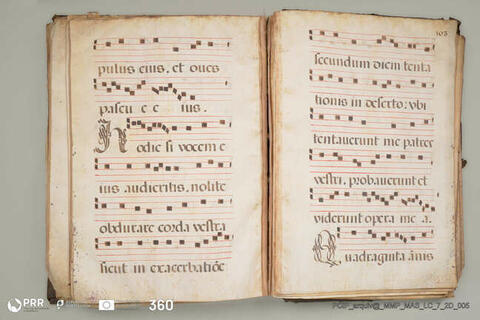 pulus eius, et oues
pascu e e ius.
Hodie si vocem e
ius audieritis, nolite
obdurare corda vestra
sicut in exacerbatiõe
103
secundum diem tenta
tionis in deserto: vbi
tentauerunt me patres
vestri, probauerunt et
viderunt opera me a.
Quadraginta ãnis
PRR
360